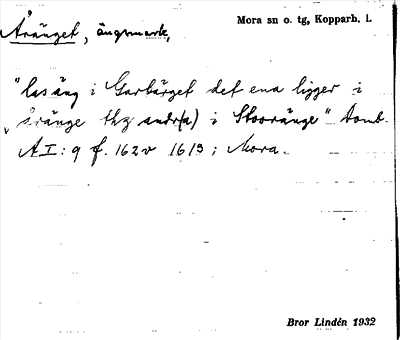 Åränget, ängsmark,
Mora sn o. tg, Kopparb. l.
"las äng i Garbärget det ena ligger i
åränge thz andr(a) i Stooränge" Domb.
A I: 9 f. 162v 1613; Mora.
Bror Lindén 1932